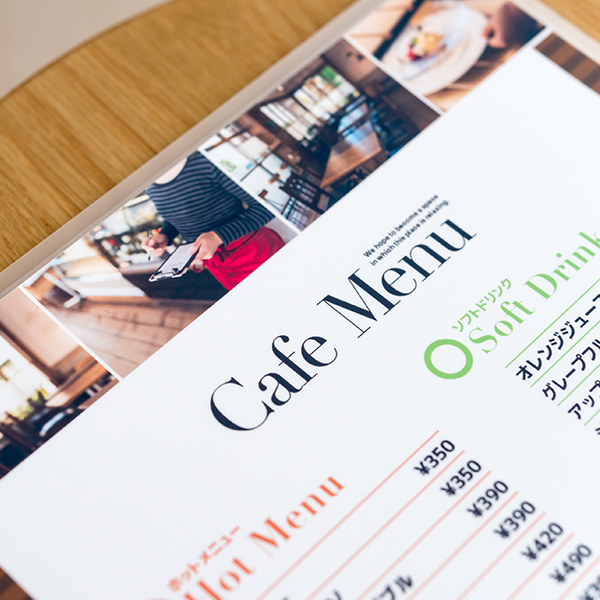 We hope to become a space
in which this place is relaxing.
Cafe Menu
ソフトドリンク
Soft Drink
オレンジジュース
グレープフル
アップ
ホットメニュー
Hot Menu
¥350
¥350
¥390
¥390
¥420
¥490